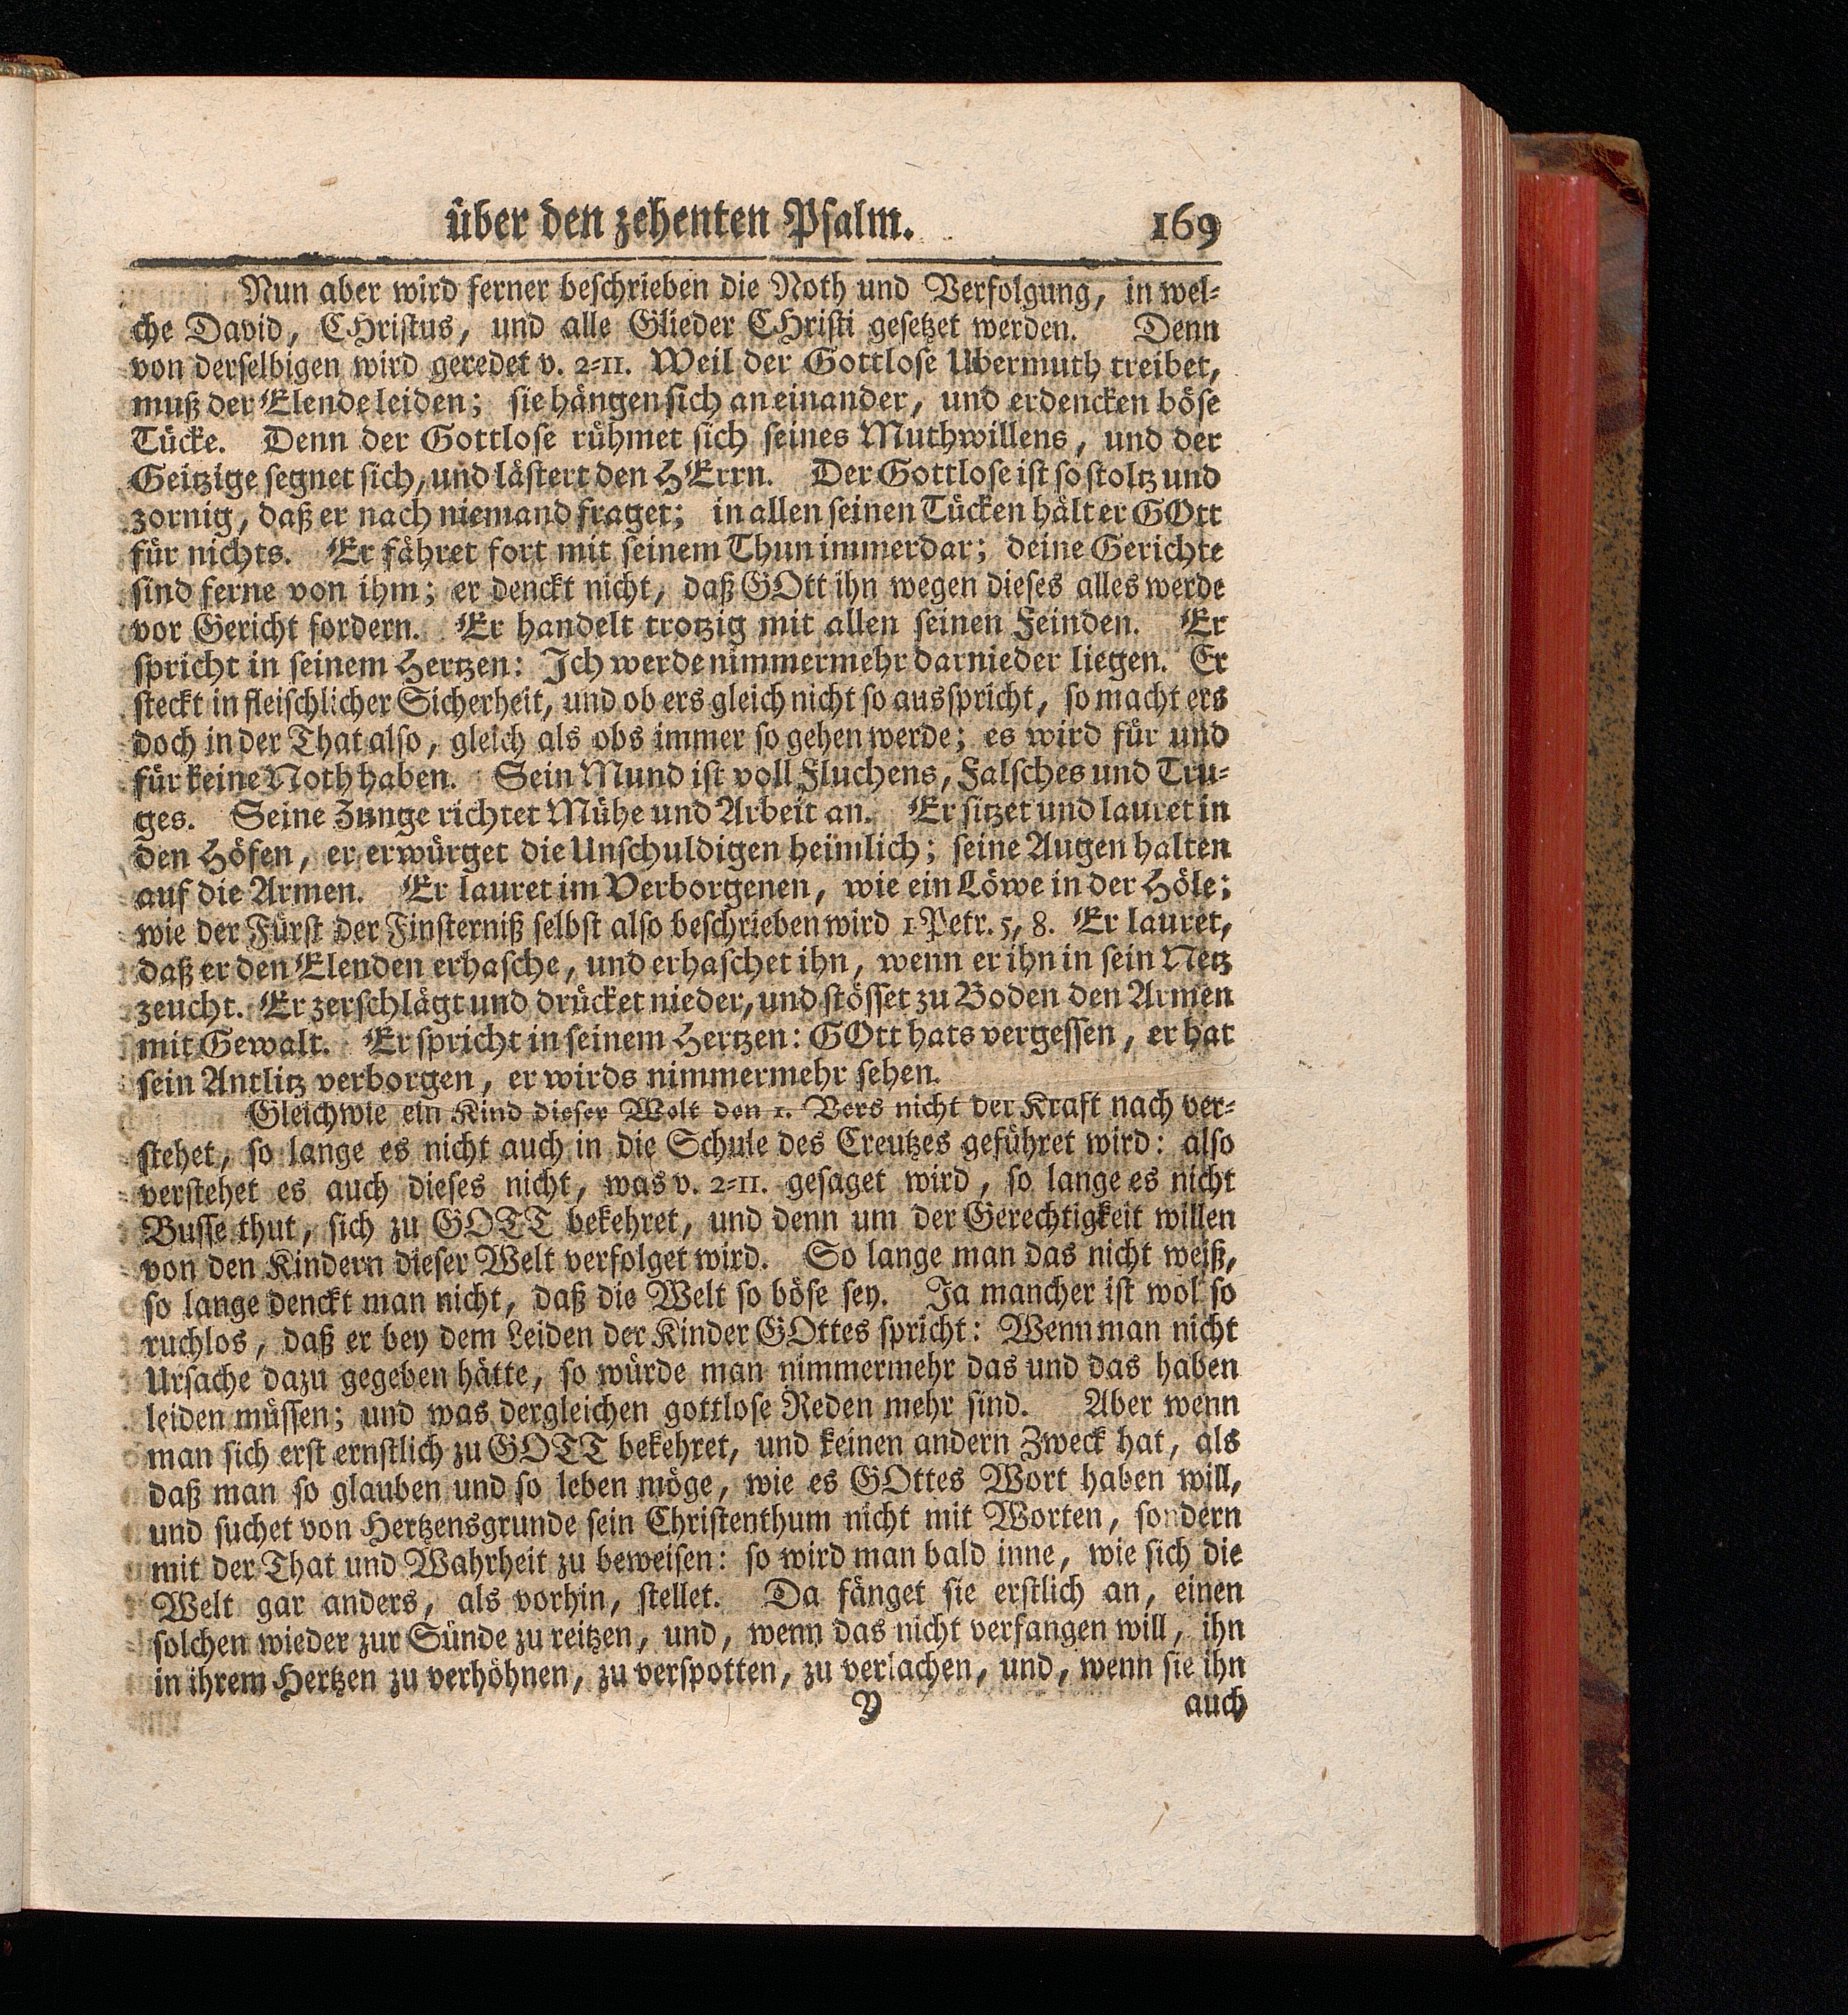 über den zehenten Psalm. 169
Nun aber wird ferner beschrieben die Noth und Verfolgung, in wel-
che David, CHristus, und alle Glieder CHristi gesetzet werden. Denn
von derselbigen wird geredet v. 2-11. Weil der Gottlose Ubermuth treibet,
muß der Elende leiden; sie hängen sich an einander, und erdencken böse
Tücke. Denn der Gottlose rühmet sich seines Muthwillens, und der
Geitzige segnet sich, und lästert den HErrn. Der Gottlose ist so stoltz und
zornig, daß er nach niemand fraget; in allen seinen Tücken hält er GOtt
für nichts. Er fähret fort mit seinem Thun immerdar; deine Gerichte
sind ferne von ihm; er denckt nicht, daß GOtt ihn wegen dieses alles werde
vor Gericht fordern. Er handelt trotzig mit allen seinen Feinden. Er
spricht in seinem Hertzen: Ich werde nimmermehr darnieder liegen. Er
steckt in fleischlicher Sicherheit, und ob ers gleich nicht so ausspricht, so macht ers
doch in der That also, gleich als obs immer so gehen werde; es wird für und
für keine Noth haben. Sein Mund ist voll Fluchens, Falsches und Tru-
ges. Seine Zunge richtet Mühe und Arbeit an. Er sitzet und lauret in
den Höfen, er erwürget die Unschuldigen heimlich; seine Augen halten
auf die Armen. Er lauret im Verborgenen, wie ein Löwe in der Höle;
wie der Fürst der Finsterniß selbst also beschrieben wird 1 Petr. 5, 8. Er lauret,
daß er den Elenden erhasche, und erhaschet ihn, wenn er ihn in sein Netz
zeucht. Er zerschlägt und drücket nieder, und stösset zu Boden den Armen
mit Gewalt. Er spricht in seinem Hertzen: GOtt hats vergessen, er hat
sein Antlitz verborgen, er wirds nimmermehr sehen.
Gleichwie ein Kind dieser Welt den 1. Vers nicht der Kraft nach ver-
stehet, so lange es nicht auch in die Schule des Creutzes geführet wird: also
verstehet es auch dieses nicht, was v. 2-11. gesaget wird, so lange es nicht
Busse thut, sich zu GOTT bekehret, und denn um der Gerechtigkeit willen
von den Kindern dieser Welt verfolget wird. So lange man das nicht weiß,
so lange denckt man nicht, daß die Welt so böse sey. Ja mancher ist wol so
ruchlos, daß er bey dem Leiden der Kinder GOttes spricht: Wenn man nicht
Ursache dazu gegeben hätte, so würde man nimmermehr das und das haben
leiden müssen; und was dergleichen gottlose Reden mehr sind. Aber wenn
man sich erst ernstlich zu GOTT bekehret, und keinen andern Zweck hat, als
daß man so glauben und so leben möge, wie es GOttes Wort haben will,
und suchet von Hertzensgrunde sein Christenthum nicht mit Worten, sondern
mit der That und Wahrheit zu beweisen: so wird man bald inne, wie sich die
Welt gar anders, als vorhin, stellet. Da fänget sie erstlich an, einen
solchen wieder zur Sünde zu reitzen, und, wenn das nicht verfangen will, ihn
in ihrem Hertzen zu verhöhnen, zu verspotten, zu verlachen, und, wenn sie ihn
Y auch